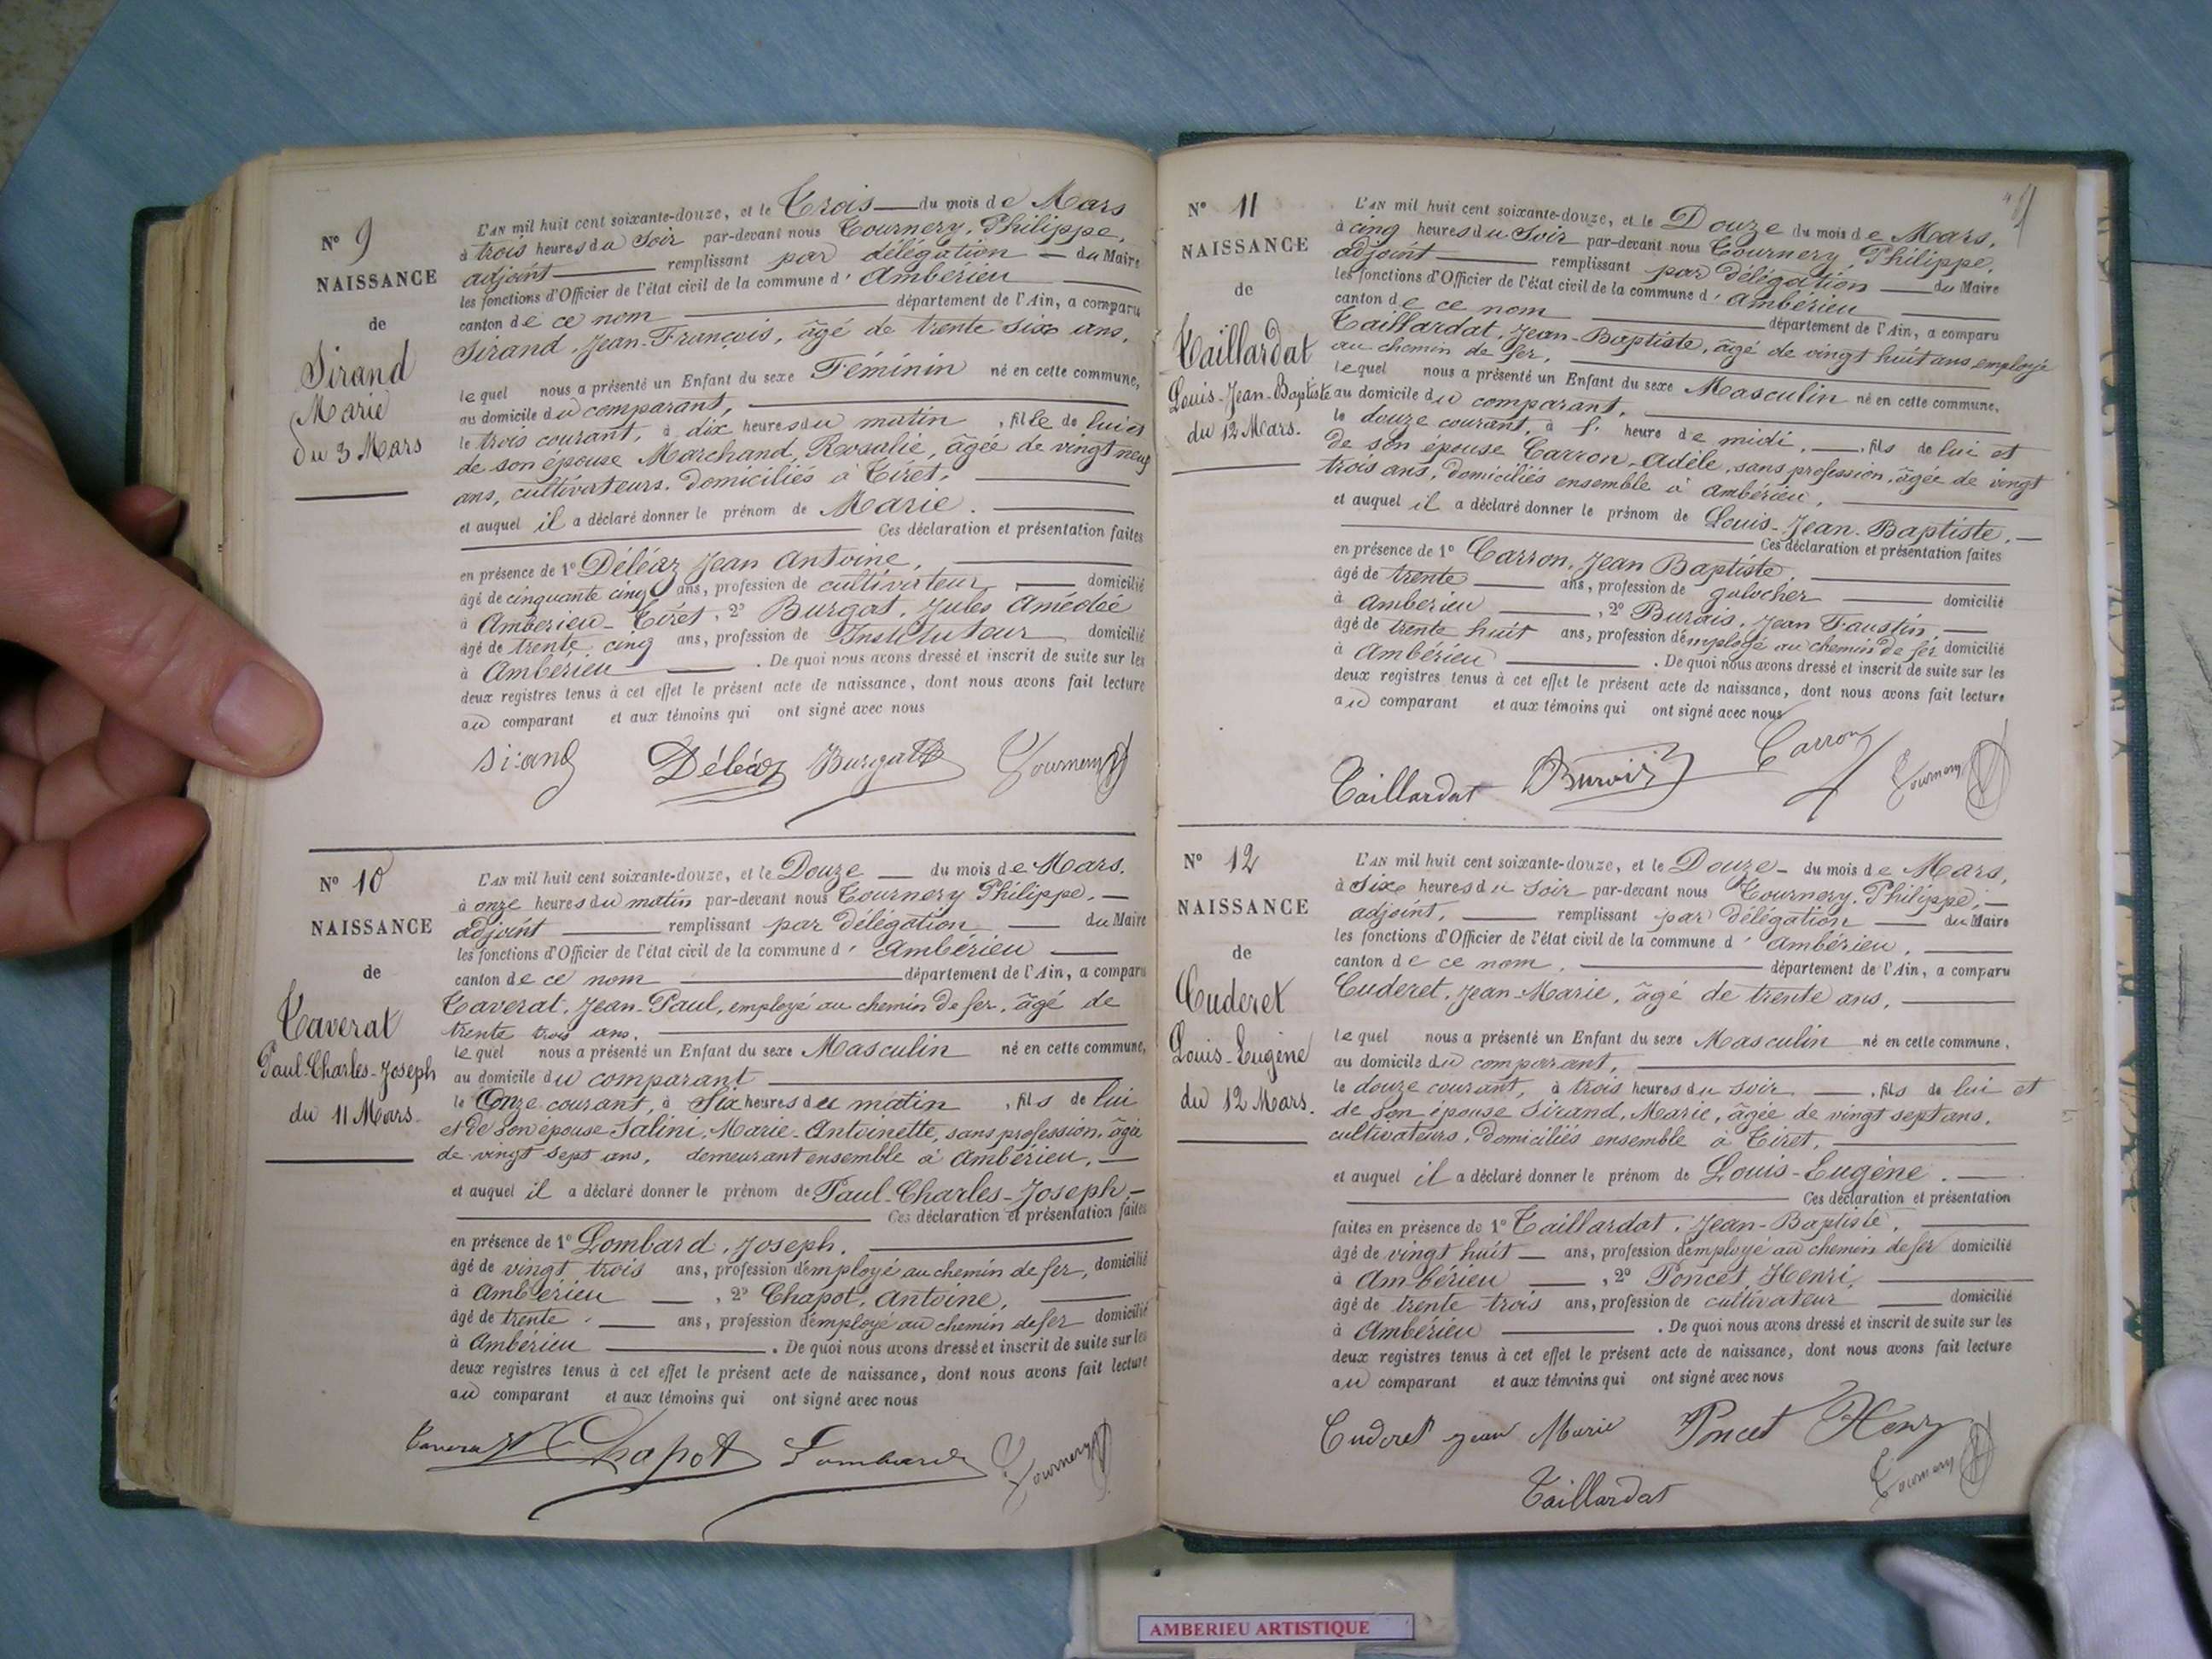 N° 9
NAISSANCE
de
Sirand
Marie
du 3 Mars
L'AN mil huit cent soixante-douze, et le Trois du mois de Mars
à trois heures du Soir par-devant nous Tournery, Philippe,
adjoint remplissant par délégation du Maire
les fonctions d'Officier de l'état civil de la commune d' Ambérieu
canton de ce nom département de l'Ain, a comparu
Sirand, Jean-François, âgé de trente six ans,
lequel nous a présenté un Enfant du sexe Féminin né en cette commune,
au domicile du comparant,
le trois courant, à dix heures du matin , fille de lui et
de son épouse Marchand, Rosalie, âgée de vingt neuf
ans, cultivateurs. domiciliés à Tiret,
et auquel il a déclaré donner le prénom de Marie.
Ces déclaration et présentation faites
en présence de 1° Déléaz Jean Antoine,
âgé de cinquante cinq ans, profession de cultivateur domicilié
à Ambérieu-Tiret, 2° Burgat, Jules Amédéé
âgé de trente cinq ans, profession de Instituteur domicilié
à Ambérieu . De quoi nous avons dressé et inscrit de suite sur les
deux registres tenus à cet effet le présent acte de naissance, dont nous avons fait lecture
au comparant et aux témoins qui ont signé avec nous
Sirand Déléaz Burgat Tournery
N° 10
NAISSANCE
de
Taverat
Paul-Charles-Joseph
du 11 Mars.
L'AN mil huit cent soixante-douze, et le Douze du mois de Mars.
à onze heures du matin par-devant nous Tournery Philippe,
adjoint remplissant par délégation du Maire
les fonctions d'Officier de l'état civil de la commune d' Ambérieu
canton de ce nom département de l'Ain, a comparu
Taverat, Jean-Paul, employé au chemin de fer, âgé de
trente trois ans,
lequel nous a présenté un Enfant du sexe Masculin né en cette commune,
au domicile du comparant
le Onze courant, à Six heures du matin , fils de lui
et de son épouse Salini, Marie-Antoinette, sans profession, âgée
de vingt sept ans, demeurant ensemble à Ambérieu,
et auquel il a déclaré donner le prénom de Paul-Charles-Joseph,
Ces déclaration et présentation faites
en présence de 1° Lombard, Joseph,
âgé de vingt trois ans, profession d'employé au chemin de fer, domicilié
à Ambérieu , 2° Chapot, Antoine,
âgé de trente ans, profession d'employé au chemin de fer domicilié
à Ambérieu . De quoi nous avons dressé et inscrit de suite sur les
deux registres tenus à cet effet le présent acte de naissance, dont nous avons fait lecture
au comparant et aux témoins qui ont signé avec nous
Taverat Chapot Lombard Tournery
N° 11
NAISSANCE
de
Taillardat
Louis-Jean-Baptiste
du 12 Mars.
L'AN mil huit cent soixante-douze, et le Douze du mois de Mars,
à cinq heures du Soir par-devant nous Tournery, Philippe,
adjoint remplissant par délégation du Maire
les fonctions d'Officier de l'état civil de la commune d' Ambérieu
canton de ce nom département de l'Ain, a comparu
Taillardat, Jean-Baptiste, âgé de vingt huit ans employé
au chemin de fer,
lequel nous a présenté un Enfant du sexe Masculin né en cette commune,
au domicile du comparant,
le douze courant, à heure de midi, , fils de lui et
de son épouse Carron, Adèle, sans profession, âgée de vingt
trois ans, domiciliés ensemble à Ambérieu,
et auquel il a déclaré donner le prénom de Louis-Jean-Baptiste,
Ces déclaration et présentation faites
en présence de 1° Carron, Jean Baptiste,
âgé de trente ans, profession de galocher domicilié
à Ambérieu , 2° Burais, Jean Faustin,
âgé de trente huit ans, profession d'employé au chemin de fer domicilié
à Ambérieu . De quoi nous avons dressé et inscrit de suite sur les
deux registres tenus à cet effet le présent acte de naissance, dont nous avons fait lecture
au comparant et aux témoins qui ont signé avec nous
Taillardat Carron Tournery
N° 12
NAISSANCE
de
Cuderet
Louis-Eugène
du 12 Mars.
L'AN mil huit cent soixante-douze, et le Douze du mois de Mars,
à Six heures du soir par-devant nous Tournery, Philippe,
adjoint, remplissant par délégation du Maire
les fonctions d'Officier de l'état civil de la commune d' Ambérieu,
canton de ce nom, département de l'Ain, a comparu
Cuderet, Jean-Marie, âgé de trente ans,
lequel nous a présenté un Enfant du sexe Masculin né en cette commune,
au domicile du comparant,
le douze courant, à trois heures du soir , fils de lui et
de son épouse Sirand, Marie, âgée de vingt sept ans,
cultivateurs, domiciliés ensemble à Tiret,
et auquel il a déclaré donner le prénom de Louis-Eugène.
Ces déclaration et présentation
faites en présence de 1° Taillardat, Jean-Baptiste,
âgé de vingt huit ans, profession d'employé au chemin de fer domicilié
à Ambérieu , 2° Poncet, Henri,
âgé de trente trois ans, profession de cultivateur domicilié
à Ambérieu . De quoi nous avons dressé et inscrit de suite sur les
deux registres tenus à cet effet le présent acte de naissance, dont nous avons fait lecture
au comparant et aux témoins qui ont signé avec nous
Cuderet jean Marie Poncet Henry
Taillardat Tournery
AMBERIEU ARTISTIQUE